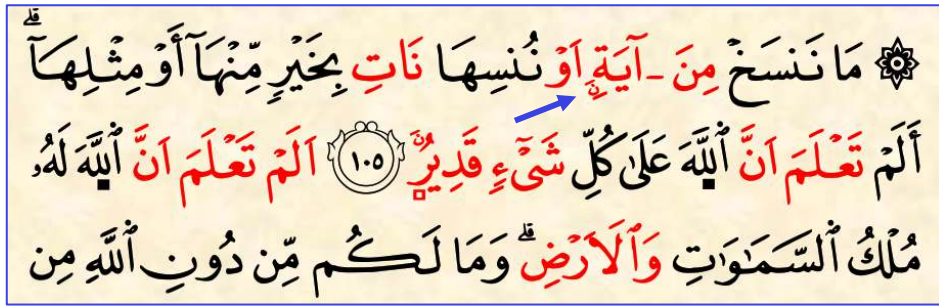 ۞ مَا نَنسَخۡ مِنَ ـ اٰيَةٍ اَوۡ نُنسِهَا نَاتِ بِخَيۡرٖ مِّنۡهَآ أَوۡ مِثۡلِهَآۗ
أَلَمۡ تَعۡلَمَ اَنَّ ٱللَّهَ عَلَىٰ كُلِّ شَيۡءٖ قَدِيرٌ ١٠٥ اَلَمۡ تَعۡلَمَ اَنَّ ٱللَّهَ لَهُۥ
مُلۡكُ ٱلسَّمَٰوَٰتِ وَٱلَارۡضِۗ وَمَا لَكُم مِّن دُونِ ٱللَّهِ مِن